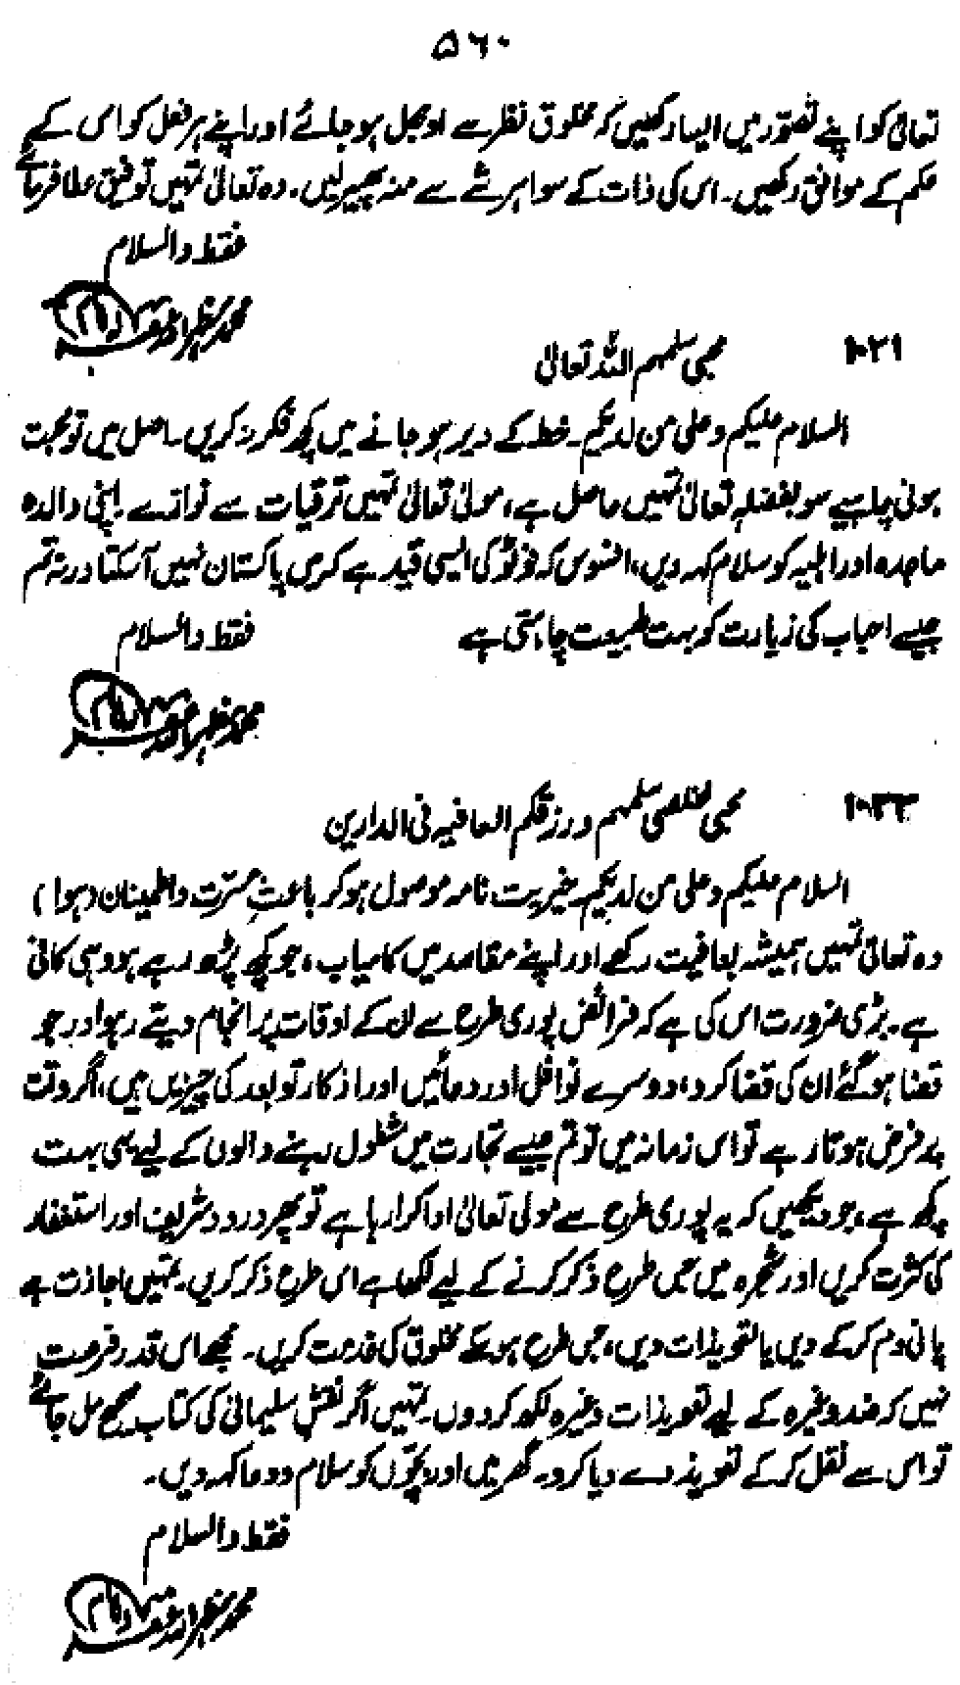 ۵۶۰
تعالیٰ کو اپنے تصوّر میں ایسا رکھیں کہ مخلوق نظر سے اوجھل ہو جائے اور اپنے ہر فعل کو اس کے
حکم کے موافق رکھیں۔ اس کی ذات کے سوا ہر شے سے منہ پھیر لیں۔ وہ تعالیٰ تمہیں توفیق عطا فرمائے
فقط والسلام
محمد مظہر اللہ
۱۰۲۱
محبی سلمہم اللہ تعالیٰ
السلام علیکم وعلی من لدیکم۔ خط کے دیر ہو جانے میں کچھ فکر نہ کریں۔ اصل میں تو محبت
ہونی چاہیے سو بفضلہ تعالیٰ تمہیں حاصل ہے، مولیٰ تعالیٰ تمہیں ترقیات سے نوازے اپنی والدہ
ماجدہ اور اہلیہ کو سلام کہہ دیں، افسوس کہ فوٹو کی ایسی قید ہے کہ میں پاکستان نہیں آسکتا ورنہ تم
جیسے احباب کی زیارت کو بہت طبیعت چاہتی ہے
فقط والسلام
محمد مظہر اللہ
۱۰۲۲
محبی مخلصی سلمہم ورزقکم العافیہ فی الدارین
السلام علیکم وعلی من لدیکم۔ خیریت نامہ موصول ہو کر باعثِ مسرّت واطمینان (ہوا)
وہ تعالیٰ تمہیں ہمیشہ بعافیت رکھے اور اپنے مقاصد میں کامیاب، جو کچھ پڑھ رہے ہو وہی کافی
ہے۔ بڑی ضرورت اس کی ہے کہ فرائض پوری طرح سے ان کے اوقات پر انجام دیتے رہو اور جو
قضا ہو گئے ان کی قضا کرو، دوسرے نوافل اور دعائیں اور اذکار تو بعد کی چیزیں ہیں، اگر وقت
پر فرض ہوتا رہے تو اس زمانہ میں تو تم جیسے تجارت میں مشغول رہنے والوں کے لیے یہی بہت
کچھ ہے، جو دیکھیں کہ یہ پوری طرح سے مولیٰ تعالیٰ ادا کرا رہا ہے تو پھر درود شریف اور استغفار
کی کثرت کریں اور شجرہ میں جس طرح ذکر کرنے کے لیے لکھا ہے اس طرح ذکر کریں۔ تمہیں اجازت ہے
پانی دم کر کے دیں یا تعویذات دیں، جس طرح ہو سکے مخلوق کی خدمت کریں۔ مجھے اس قدر فرصت
نہیں کہ وغیرہ کے لیے تعویذات وغیرہ لکھ کر دوں۔ تمہیں اگر نقش سلیمانی کی کتاب صحیح مل جائے
تو اس سے نقل کر کے تعویذ دے دیا کرو۔ گھر میں اور بچّوں کو سلام و دعا کہہ دیں۔
فقط والسلام
محمد مظہر اللہ